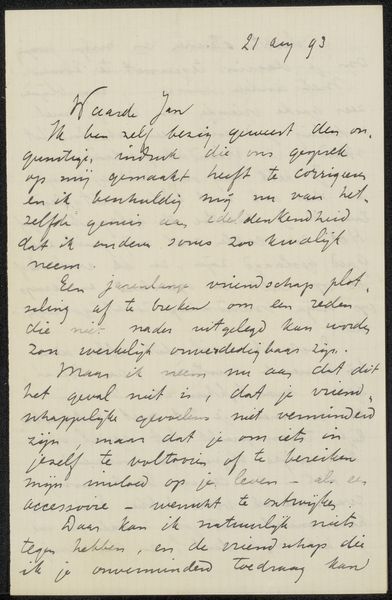 21 aug 93
Waarde Jan
Ik ben zelf bezig geweest den on-
gunstige indruk die ons gesprek
op mij gemaakt heeft te corrigeren
en ik beschuldig mij nu van het-
zelfde gemis aan edeldenkendheid
dat ik anderen soms zoo kwalijk
neem.
Een jarenlange vriendschap plot-
seling af te breken om een reden
die niet nader uitgelegd kan worden
zou werkelijk onverdedigbaar zijn.
Maar ik neem nu aan dat dit
het geval niet is, dat je vriend-
schappelijke gevoelens niet verminderd
zijn, maar dat je om iets in
jezelf te voltooien of te bereiken
mijn invloed op je leven – als een
accessoire – wenscht te ontwijken.
Daar kan ik natuurlijk niets
tegen hebben, en de vriendschap die
ik je onverminderd toedraag kan